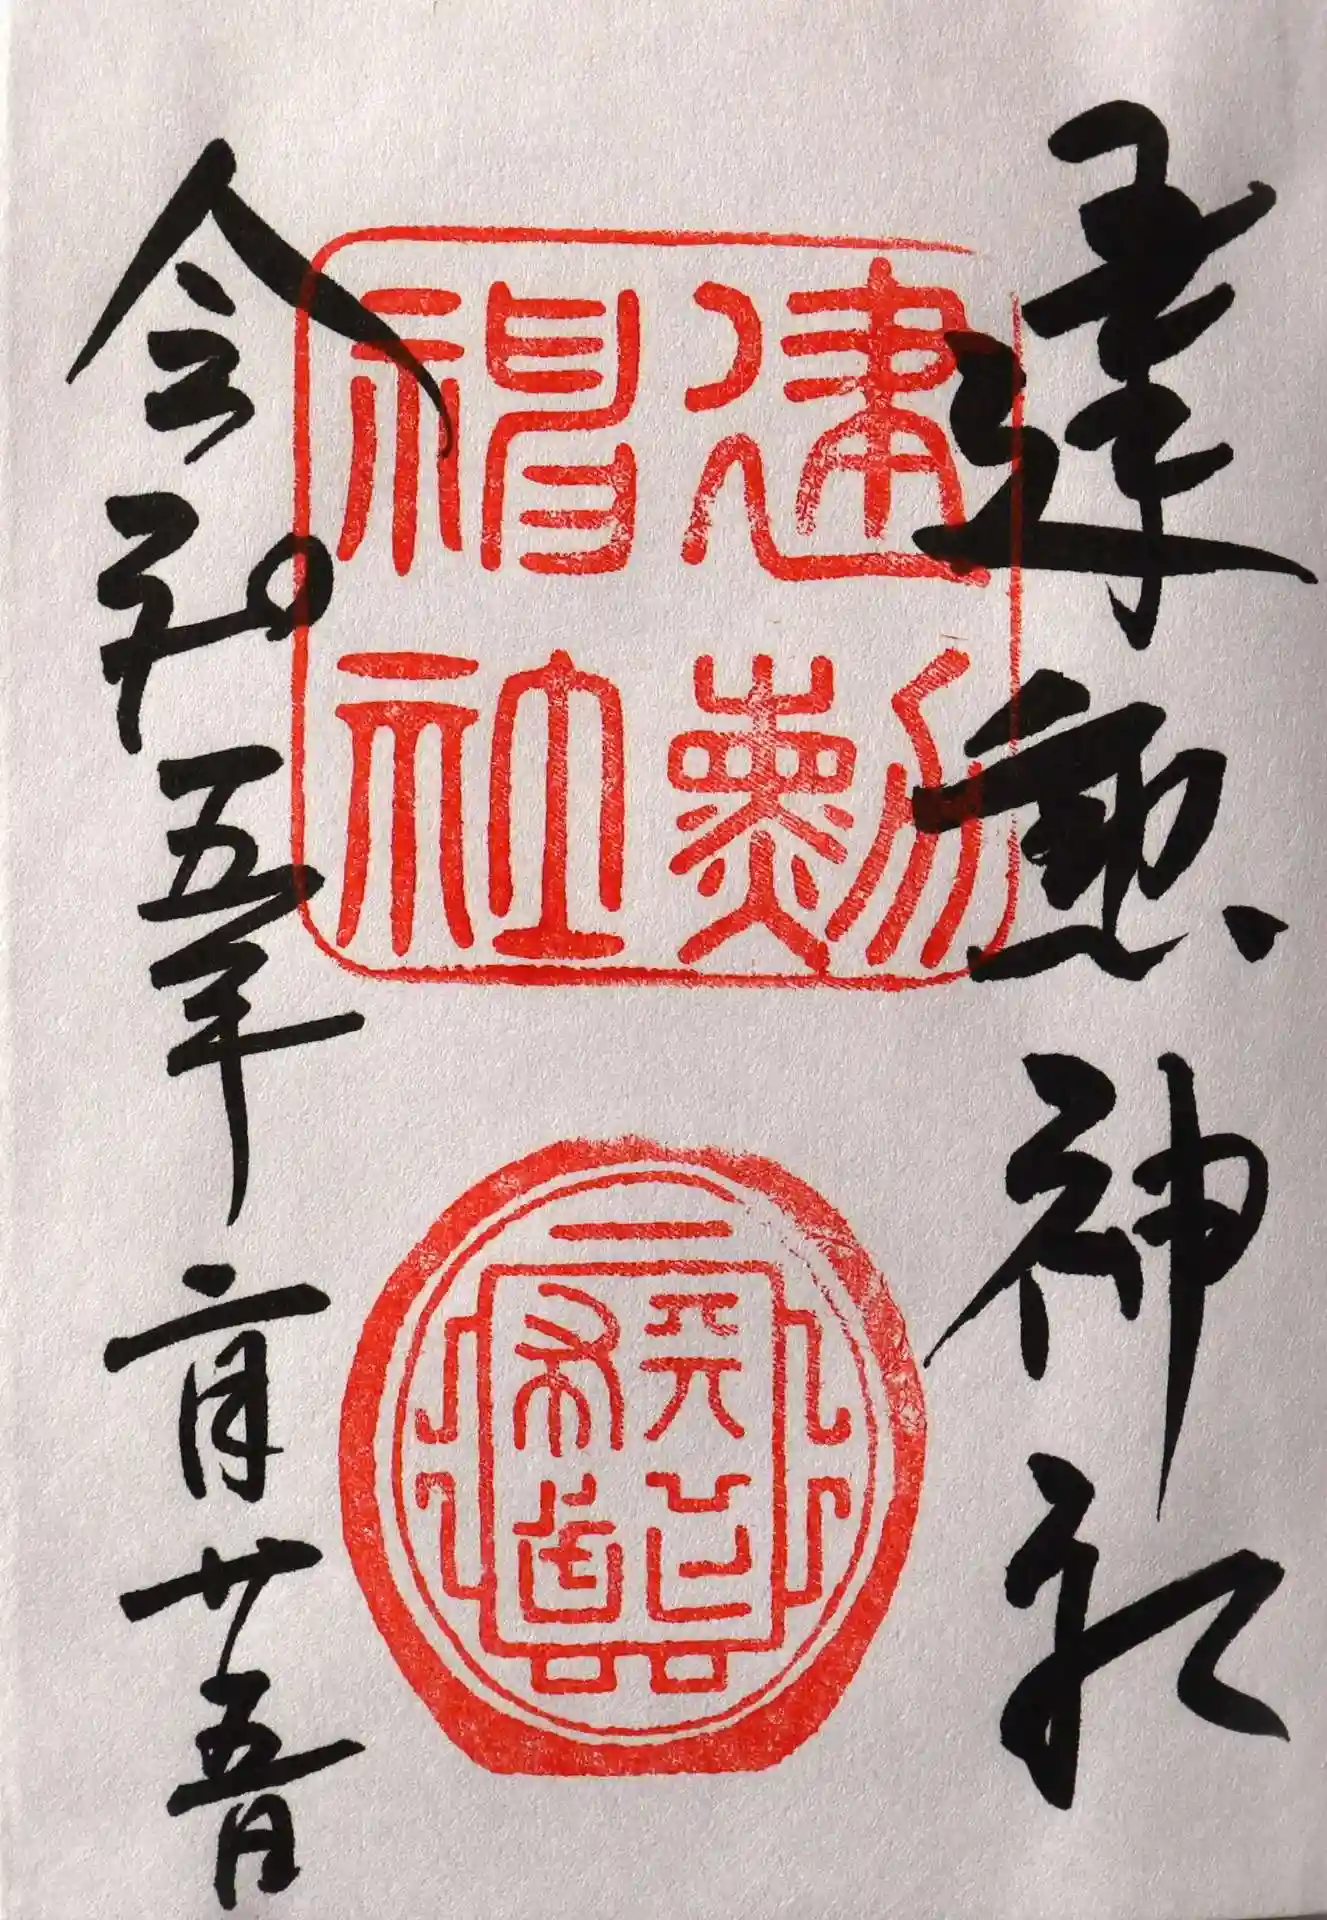 建勲神社
建勲
神社
天下
布武
令和五年二月廿五日